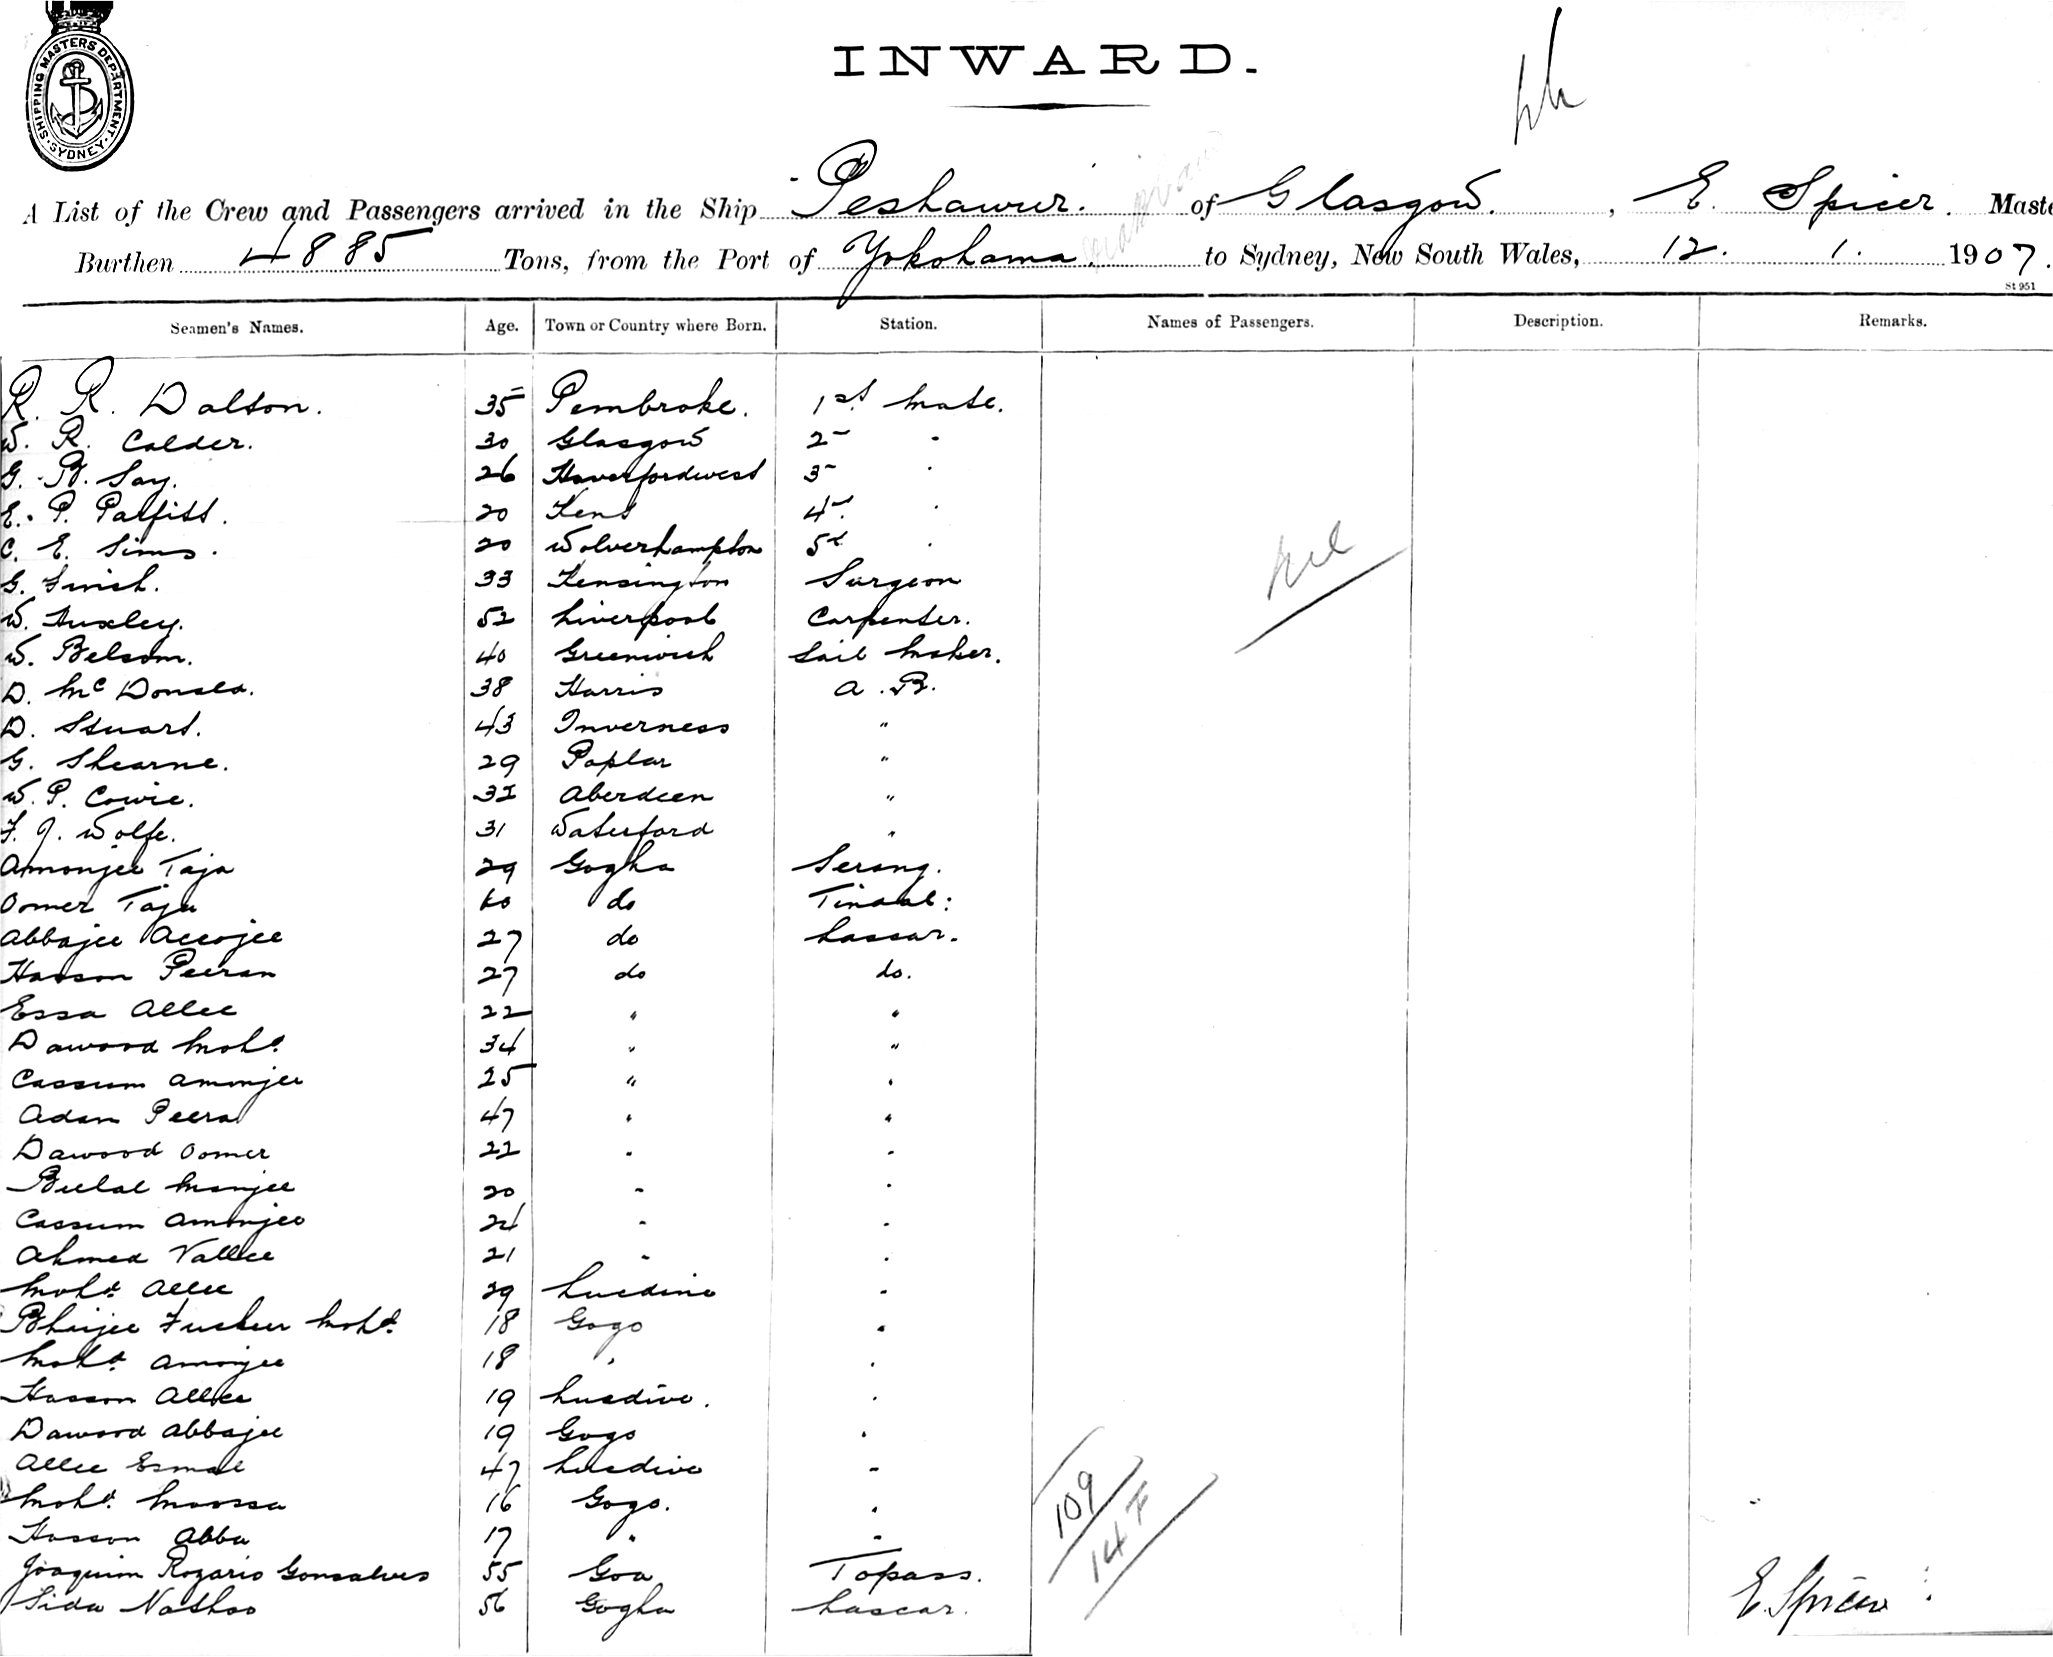 SHIPPING MASTERS DEPARTMENT. SYDNEY
INWARD.
A List of the Crew and Passengers arrived in the Ship Peshawur. of Glasgow. , E. Spicer. Maste
Burthen 4885 Tons, from the Port of Yokohama. to Sydney, New South Wales, 12. 1. 1907.
St 951
Seamen's Names. Age. Town or Country where Born. Station. Names of Passengers. Description. Remarks.
R. R. Dalton. 35 Pembroke. 1st Mate.
W. R. Calder. 30 Glasgow 2 "
G. B. Say. 26 Haverfordwest 3 "
E. P. Parfitt. 20 Kent 4 "
C. E. Sims. 20 Wolverhampton 5th "
G. Finch. 33 Kensington Surgeon
Nil
W. Huxley. 52 Liverpool Carpenter.
W. Belsom. 40 Greenwich Sail Maker.
D. McDonald. 38 Harris A.B.
D. Stuart. 43 Inverness "
G. Shearne. 29 Poplar "
W. P. Cowie. 32 Aberdeen "
F. J. Wolfe. 31 Waterford "
Amonjee Taja 29 Gogha Serang.
Oomer Taja 60 do Tindal:
Abbajee 27 do Lascar.
Hasson Peeran 27 do do.
Essa Allee 22 " "
Dawood Mohd. 34 " "
Cassum Amonjee 25 " "
Adam Peera 47 " "
Dawood Oomer 22 " "
Beelal Manjee 20 " "
Cassum Amonjee 24 " "
Ahmed Vallee 21 " "
Mohd. Allee 29 "
Bhaijee Fuckeer Mohd. 18 Gogo "
Mohd. Amonjee 18 " "
Hasson Allee 19 "
Dawood Abbajee 19 Gogo "
Allee Esmal 47 "
Mohd. Moossa 16 Gogo. "
109
147
Hasson Abba 17 " "
Joaquim Rozario Gonsalves 55 Goa Topass.
Sida Nathoo 56 Gogha Lascar.
E. Spicer